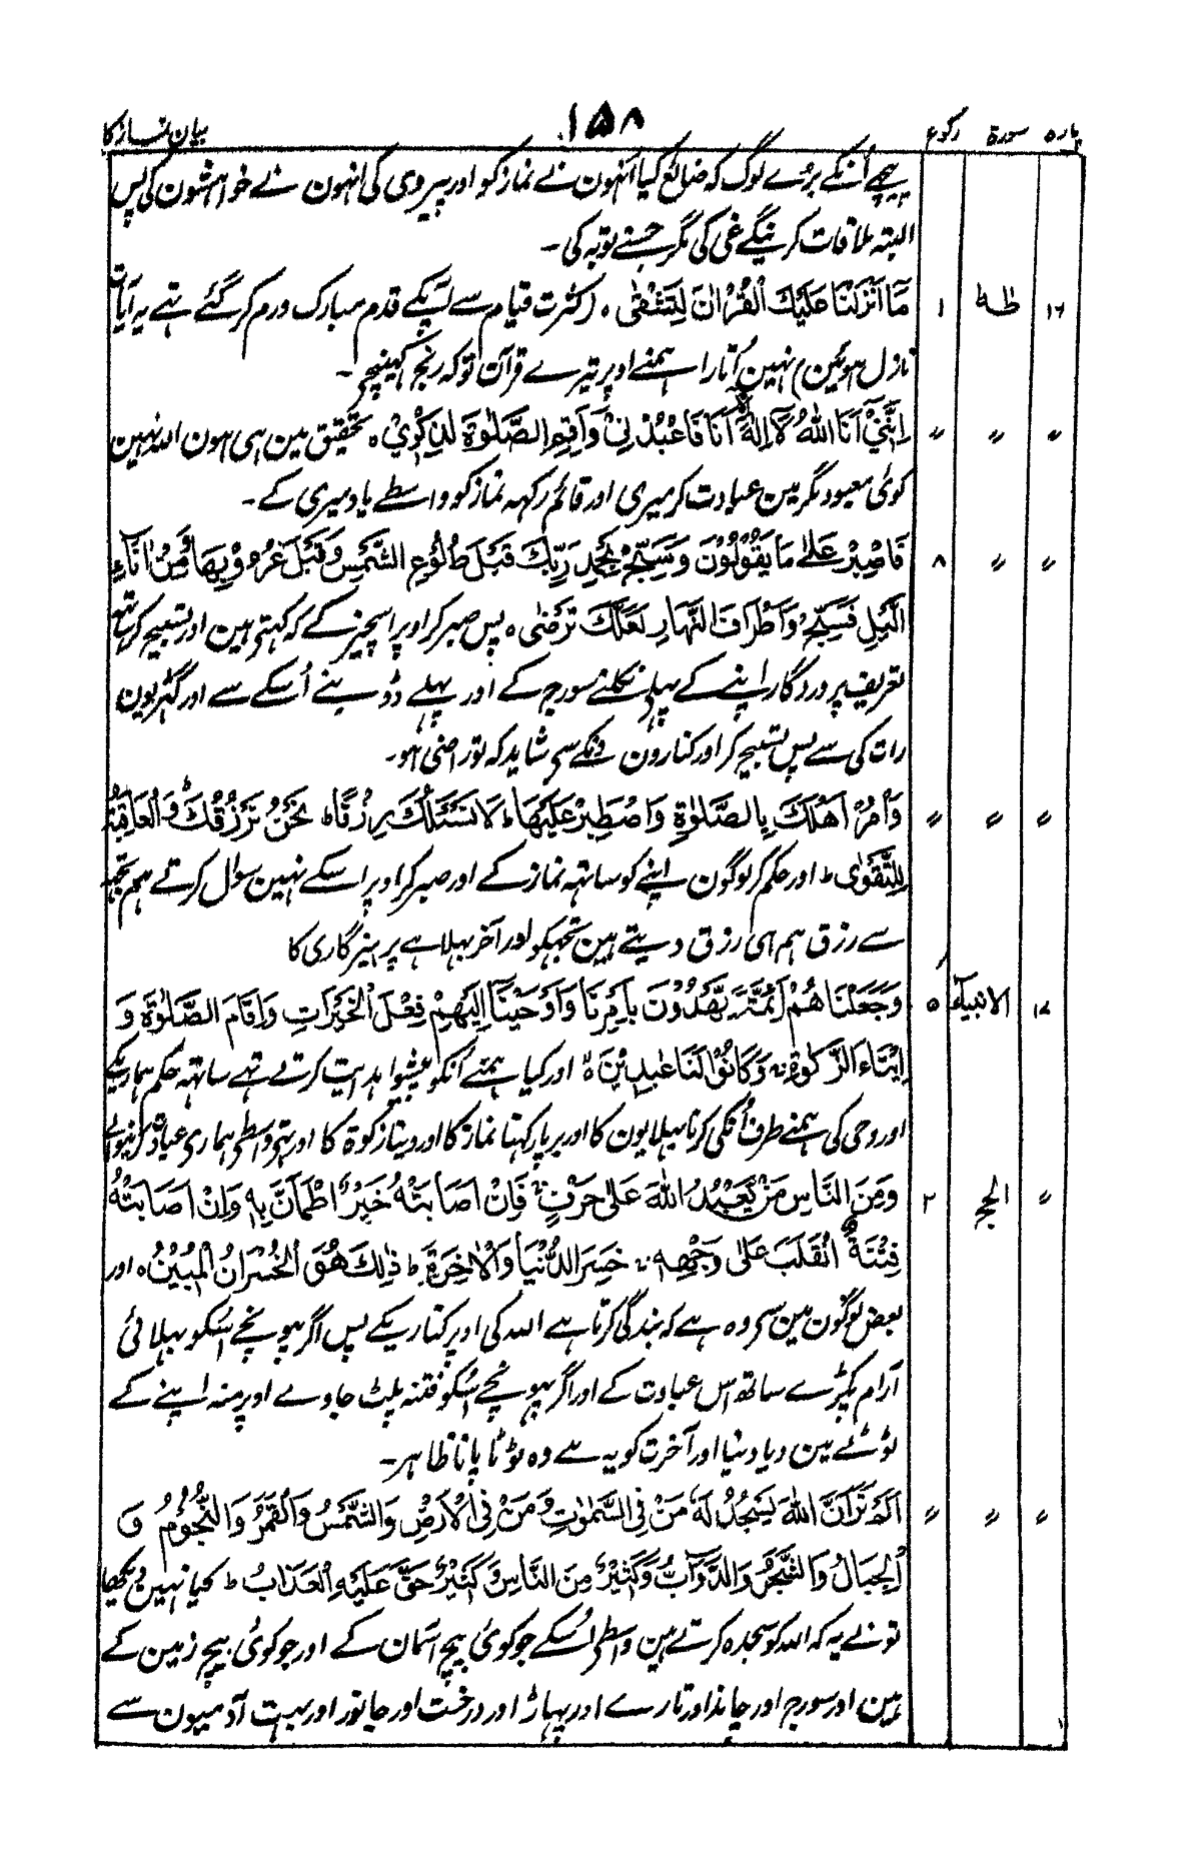 پارہ سورۃ رکوع ۱۵۸ بیان نماز کا
پیچھے اُنکے بڑے لوگ کہ ضائع کیا اُنہون نے نماز کو اور پیروی کی انہون نے خواہشون کی پس
البتہ ملاقات کرینگے غی کی مگر جسنے توبہ کی۔
۱۶ طٰہٰ ۱ مَا اَنْزَلْنَا عَلَیْكَ الْقُرْاٰنَ لِتَشْقٰی ۰ (کثرت قیام سے آپکے قدم مبارک ورم کر گئے تہے یہ آیات
نازل ہوئین) نہین اُتارا ہمنے اوپر تیرے قرآن تو کہ رنج کہینچے۔
〃 〃 〃 اِنَّنِیْٓ اَنَا اللّٰہُ لَآ اِلٰہَ اِلَّآ اَنَا فَاعْبُدْنِیْ وَاَقِمِ الصَّلٰوۃَ لِذِکْرِیْ ۰ تحقیق مین ہی ہون اللہ نہین
کوئی معبود مگر مین عبادت کر میری اور قائم رکہہ نماز کو واسطے یاد میری کے۔
〃 〃 ۸ فَاصْبِرْ عَلٰی مَا یَقُوْلُوْنَ وَسَبِّحْ بِحَمْدِ رَبِّكَ قَبْلَ طُلُوْعِ الشَّمْسِ وَقَبْلَ غُرُوْبِہَا وَمِنْ اٰنَآءِ
الَّیْلِ فَسَبِّحْ وَاَطْرَافَ النَّہَارِ لَعَلَّكَ تَرْضٰی ۰ پس صبر کر اوپر اسچیز کے کہ کہتے ہین اور تسبیح کر ساتھ
تعریف پروردگار اپنے کے پہلے نکلنے سورج کے اور پہلے ڈوبنے اُسکے سے اور گہڑیون
رات کی سے پس تسبیح کر اور کنارون دنکے سے شاید کہ تو راضی ہو۔
〃 〃 〃 وَاْمُرْ اَہْلَكَ بِالصَّلٰوۃِ وَاصْطَبِرْ عَلَیْہَا ط لَا نَسْئَلُكَ رِزْقًا ط نَحْنُ نَرْزُقُكَ ط وَالْعَاقِبَۃُ
لِلتَّقْوٰی ط اور حکم کر لوگون اپنے کو ساتہہ نماز کے اور صبر کر اوپر اسکے نہین سوال کرتے ہم تجہہ
سے رزق ہم ہی رزق دیتے ہین تجہکو اور آخر بہلا ہے پرہیزگاری کا
۱۷ الانبیآء ۵ وَجَعَلْنَاہُمْ اَئِمَّۃً یَّہْدُوْنَ بِاَمْرِنَا وَاَوْحَیْنَآ اِلَیْہِمْ فِعْلَ الْخَیْرٰتِ وَاِقَامَ الصَّلٰوۃِ وَ
اِیْتَآءَ الزَّکٰوۃِ ۚ وَکَانُوْا لَنَا عٰبِدِیْنَ ۰ اور کیا ہمنے اُنکو پیشوا ہدایت کرتے تہے ساتہہ حکم ہماریکے
اور وحی کی ہمنے طرف اُنکی کرنا بہلایون کا اور برپا رکہنا نماز کا اور دینا زکوۃ کا اور تہے واسطے ہماری
〃 الحج ۲ وَمِنَ النَّاسِ مَنْ یَّعْبُدُ اللّٰہَ عَلٰی حَرْفٍ ۚ فَاِنْ اَصَابَتْہُ خَیْرُ ۨ اطْمَاَنَّ بِہٖ وَاِنْ اَصَابَتْہُ
فِتْنَۃُ ۨ انْقَلَبَ عَلٰی وَجْہِہٖ ۚ خَسِرَ الدُّنْیَا وَالْاٰخِرَۃَ ط ذٰلِكَ ہُوَ الْخُسْرَانُ الْمُبِیْنُ ۰ اور
بعض لوگون مین سے وہ ہے کہ بندگی کرتا ہے اللہ کی اوپر کنارےکے پس اگر پہونچے اسکو بہلائی
آرام پکڑے ساتھ اس عبادت کے اور اگر پہونچے اسکو فتنہ پلٹ جاوے اوپر منہ اپنے کے
ٹوٹے مین دیا دنیا اور آخرت کو یہ ہے وہ ٹوٹا پانا ظاہر۔
〃 〃 〃 اَلَمْ تَرَ اَنَّ اللّٰہَ یَسْجُدُ لَہٗ مَنْ فِی السَّمٰوٰتِ وَمَنْ فِی الْاَرْضِ وَالشَّمْسُ وَالْقَمَرُ وَالنُّجُوْمُ وَ
الْجِبَالُ وَالشَّجَرُ وَالدَّوَآبُّ وَکَثِیْرٌ مِنَ النَّاسِ وَکَثِیْرٌ حَقَّ عَلَیْہِ الْعَذَابُ ط کیا نہین دیکھا
تو نے یہ کہ اللہ کو سجدہ کرتے ہین واسطے اُسکے جو کوئی بیچ آسمان کے اور جو کوئی بیچ زمین کے
ہین اور سورج اور چاند اور تارے اور پہاڑ اور درخت اور جانور اور بہت آدمیون سے